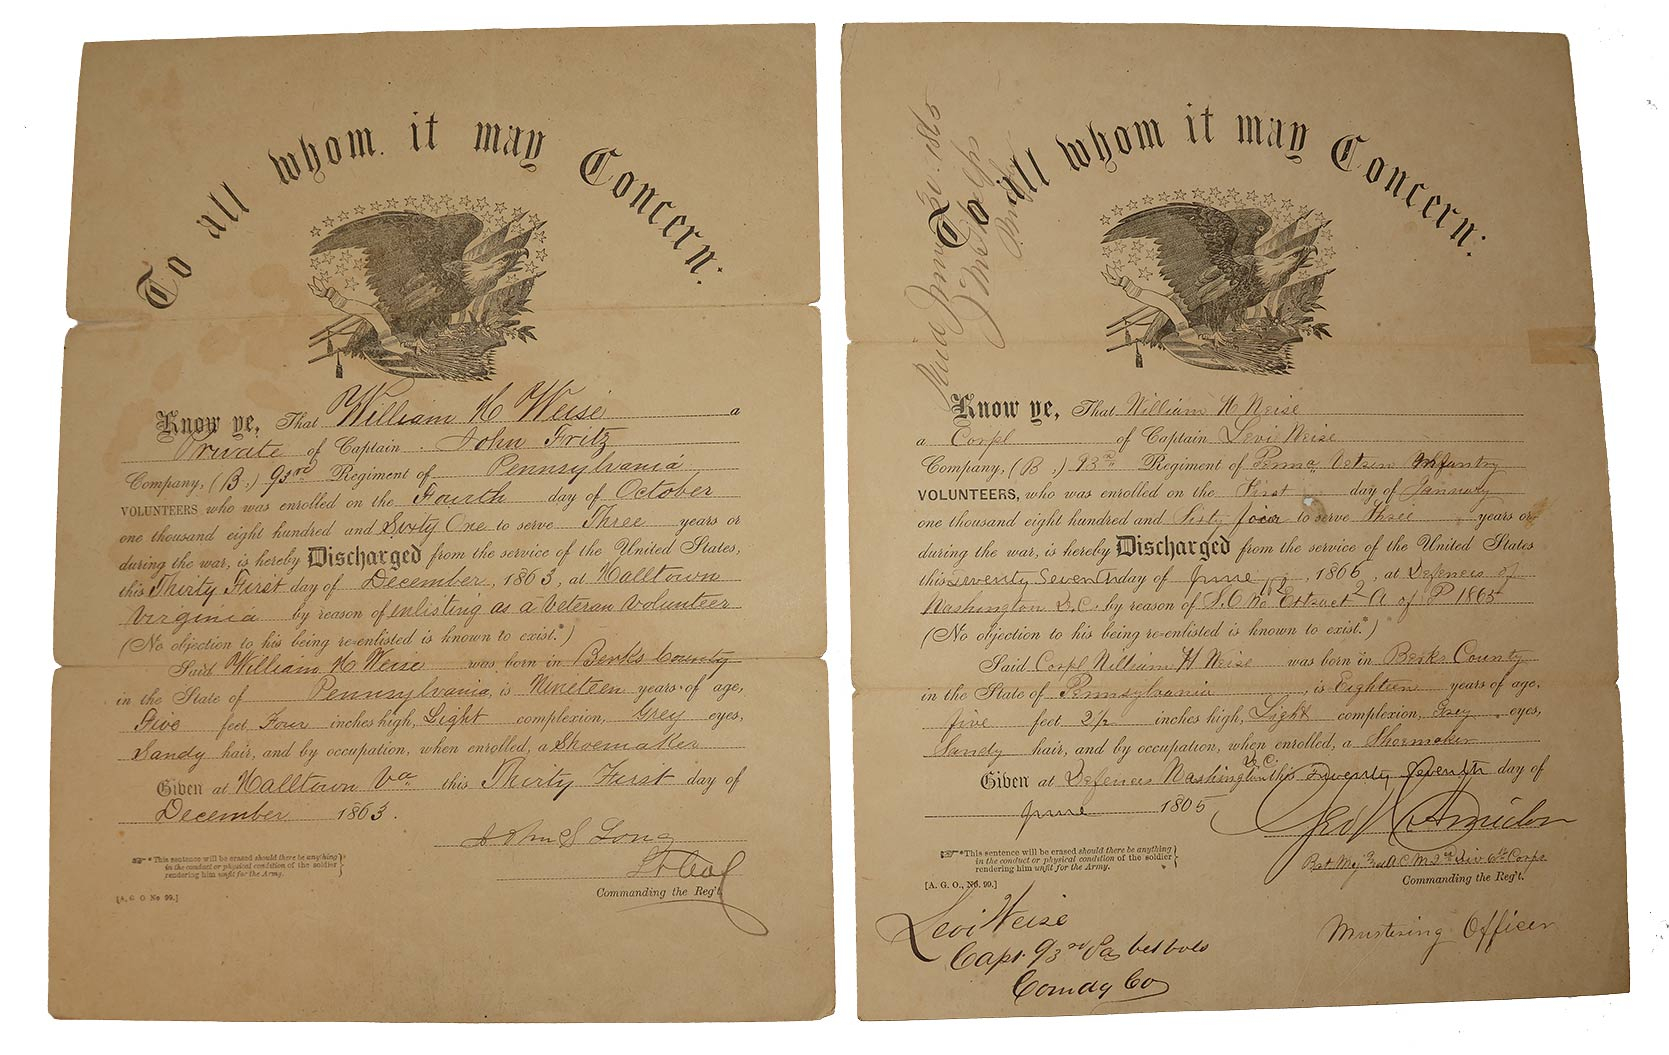 To all whom it may Concern:
Know ye, That William H Weise a
Private of Captain John Fritz
Company, (B,) 93rd Regiment of Pennsylvania
VOLUNTEERS who was enrolled on the Fourth day of October
one thousand eight hundred and Sixty One to serve Three years or
during the war, is hereby Discharged from the service of the United States,
this Thirty First day of December, 1863, at Halltown
Virginia by reason of enlisting as a Veteran Volunteer
(No objection to his being re-enlisted is known to exist.*)
Said William H Weise was born in Berks County
in the State of Pennsylvania, is Nineteen years of age,
Five feet Four inches high, Light complexion, Grey eyes,
Sandy hair, and by occupation, when enrolled, a Shoemaker
Given at Halltown Va this Thirty First day of
December 1863.
John S Long
Lt Col
Commanding the Reg't.
*This sentence will be erased should there be anything
in the conduct or physical condition of the soldier
rendering him unfit for the Army.
[A. G. O. No 99.]
To all whom it may Concern:
Know ye, That William H Weise
a Corpl of Captain Levi Weise
Company, (B,) 93rd Regiment of Penna Vetern Infantry
VOLUNTEERS, who was enrolled on the First day of January
one thousand eight hundred and Sixty four to serve Three years or
during the war, is hereby Discharged from the service of the United States
this Twenty Seventh day of June, 1865, at Defences of
Washington D.C. by reason of S.O No Extract 2 A of P 1865
(No objection to his being re-enlisted is known to exist.*)
Said Corpl William H Weise was born in Berks County
in the State of Pennsylvania, is Eighteen years of age,
Five feet 2½ inches high, Light complexion, Grey eyes,
Sandy hair, and by occupation, when enrolled, a Shoemaker
Given at Defences Washington D.C. this Twenty Seventh day of
June 1865
Bvt Maj & A C M 2nd Div 6th Corps
Commanding the Reg't.
*This sentence will be erased should there be anything
in the conduct or physical condition of the soldier
rendering him unfit for the Army.
[A. G. O., No. 99.]
Mustering Officer
Levi Weise
Capt. 93rd Pa Vet Vols
Comdg Co